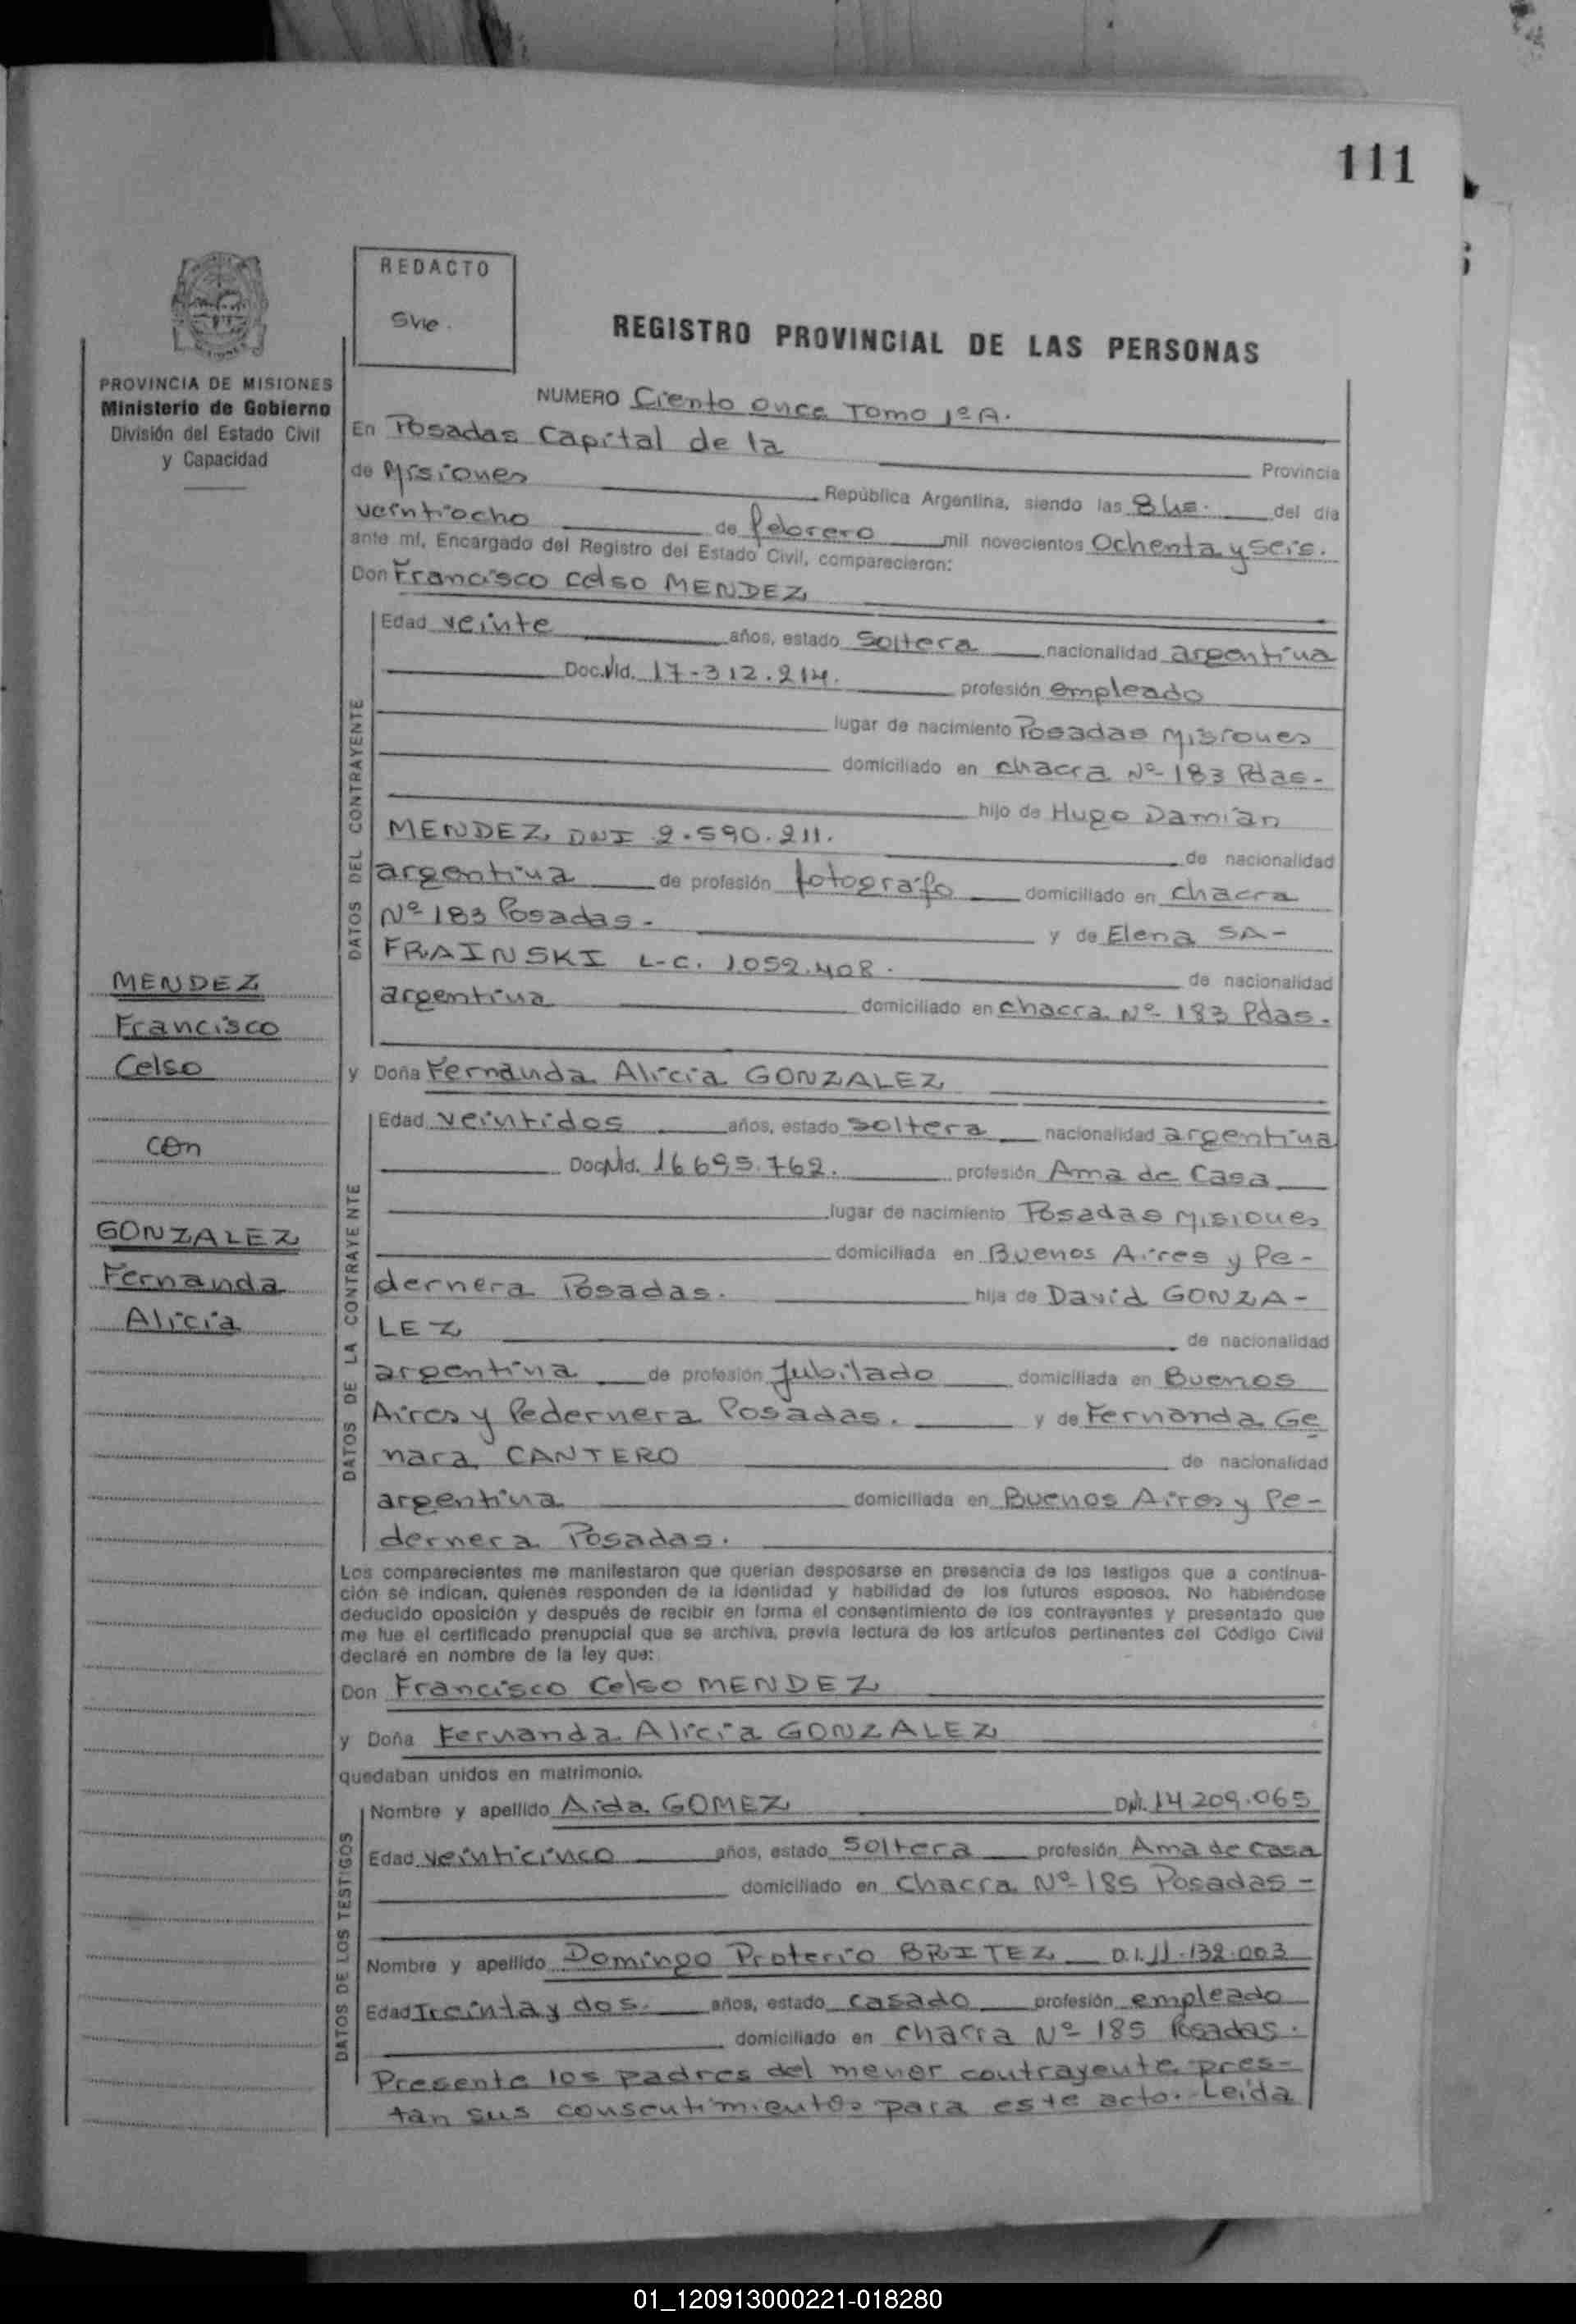 111
REDACTO
REGISTRO PROVINCIAL DE LAS PERSONAS
PROVINCIA DE MISIONES
Ministerio de Gobierno
División del Estado Civil
y Capacidad
NUMERO Ciento once Tomo 1º A.
En Posadas Capital de la Provincia
de Misiones República Argentina, siendo las 8 hs. del día
veintiocho de febrero mil novecientos Ochenta y seis.
ante mí, Encargado del Registro del Estado Civil, comparecieron:
Don Francisco Celso MENDEZ
DATOS DEL CONTRAYENTE
Edad veinte años, estado Soltera nacionalidad argentina
Doc. Nº Id. 17-312.214. profesión empleado
lugar de nacimiento Posadas Misiones
domiciliado en chacra Nº 183 Pdas-
hijo de Hugo Damián
MENDEZ DNI 2.590.211. de nacionalidad
argentina de profesión fotografo domiciliado en chacra
Nº 183 Posadas- y de Elena SA-
FRAINSKI L-C. 1052.408. de nacionalidad
argentina domiciliado en chacra Nº 183 Pdas.
MENDEZ
Francisco
Celso
con
GONZALEZ
Fernanda
Alicia
y Doña Fernanda Alicia GONZALEZ
DATOS DE LA CONTRAYENTE
Edad veintidos años, estado soltera nacionalidad argentina
Doc. Nº Id. 16695.762. profesión Ama de Casa
lugar de nacimiento Posadas Misiones
domiciliada en Buenos Aires y Pe-
dernera Posadas. hija de David GONZA-
LEZ de nacionalidad
argentina de profesión Jubilado domiciliada en Buenos
Aires y Pedernera Posadas. y de Fernanda Ge
nara CANTERO de nacionalidad
argentina domiciliada en Buenos Aires y Pe-
dernera Posadas.
Los comparecientes me manifestaron que querían desposarse en presencia de los testigos que a continua-
ción se indican, quienes responden de la identidad y habilidad de los futuros esposos. No habiéndose
deducido oposición y después de recibir en forma el consentimiento de los contrayentes y presentado que
me fue el certificado prenupcial que se archiva, previa lectura de los artículos pertinentes del Código Civil
declaré en nombre de la ley que:
Don Francisco Celso MENDEZ
y Doña Fernanda Alicia GONZALEZ
quedaban unidos en matrimonio.
DATOS DE LOS TESTIGOS
Nombre y apellido Aida GOMEZ DNI. 14 209.065
Edad veinticinco años, estado Soltera profesión Ama de casa
domiciliado en Chacra Nº 185 Posadas-
Nombre y apellido Domingo Proterio BRITEZ D.I. 11.132.003
Edad Treinta y dos. años, estado casado profesión empleado
domiciliado en chacra Nº 185 Posadas.
Presente los padres del menor contrayente pres-
tan sus consentimientos para este acto. Leída
01_120913000221-018280